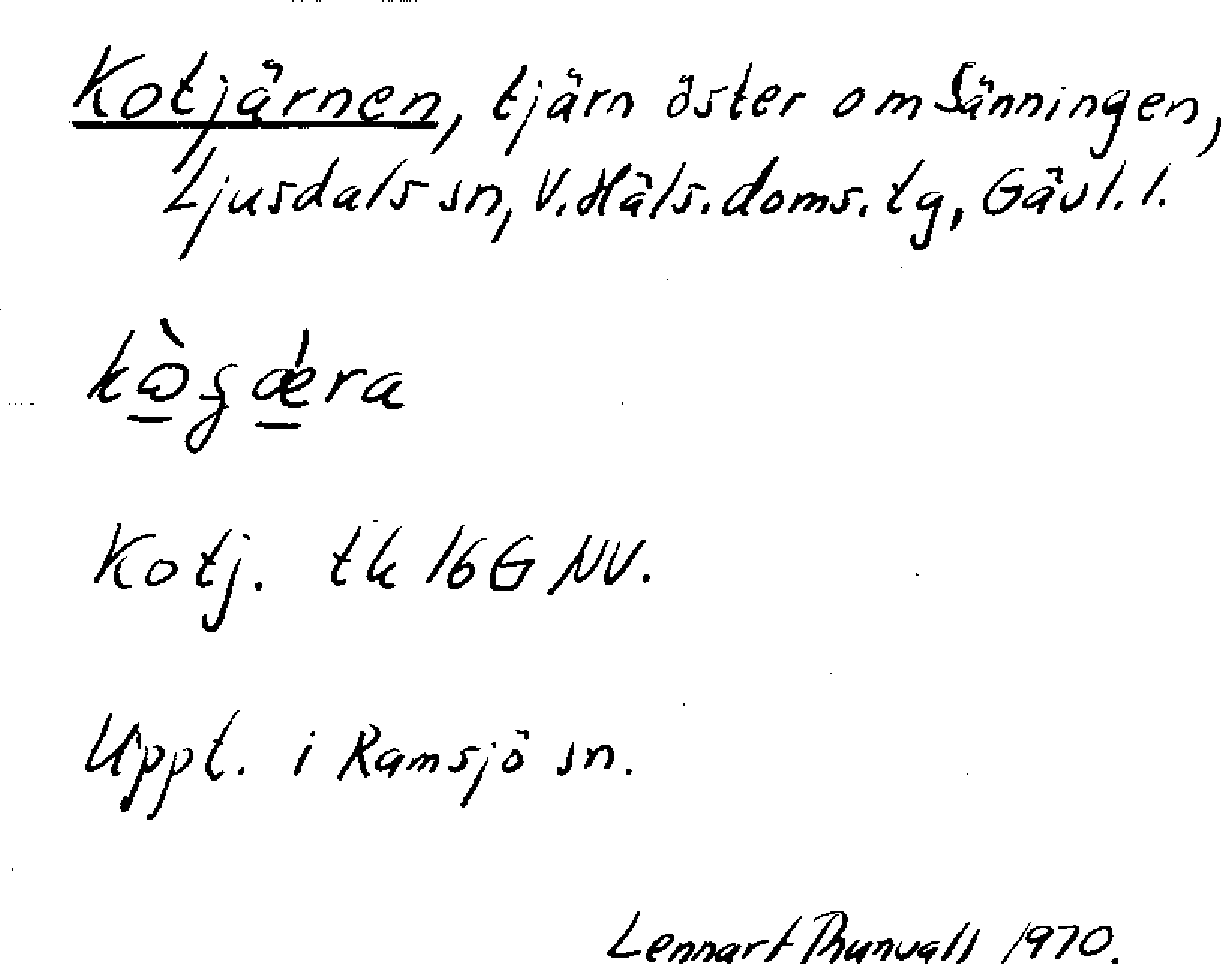 Kotjärnen, tjärn öster om Sänningen,
Ljusdals sn, V. Häls. doms. tg, Gävl. l.
Kotj. tk 16G NV.
Uppt. i Ramsjö sn.
Lennart Thunvall 1970.